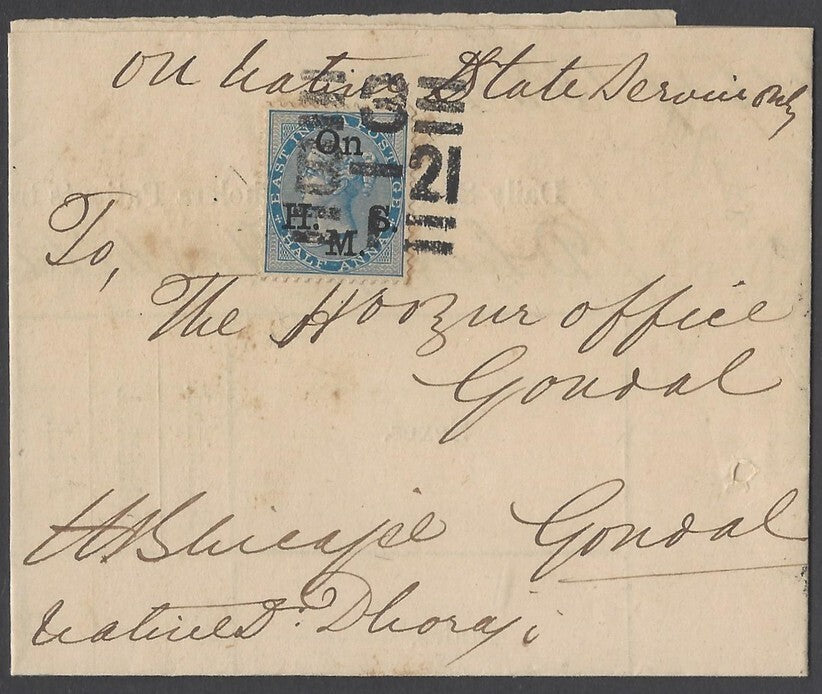 On Native State Service only
EAST INDIA POSTAGE
On
H. S.
M.
HALF ANNA
21
To,
The Hoozur office
Gondal
Gondal
Native Dr. Dhoraji